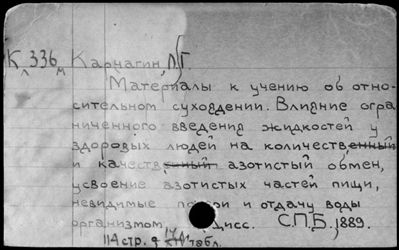 К 336 Карчагин, П. Г.
л м
Материалы к учению об отно-
сительном сухоядении. Влияние огра
ниченного введения жидкостей у
здоровых людей на количественный
и качественный азотистый обмен,
усвоение азотистых частей пищи,
невидимые и отдачу воды
организмом. Дисс. С.П.Б., 1889.
114 стр. табл.